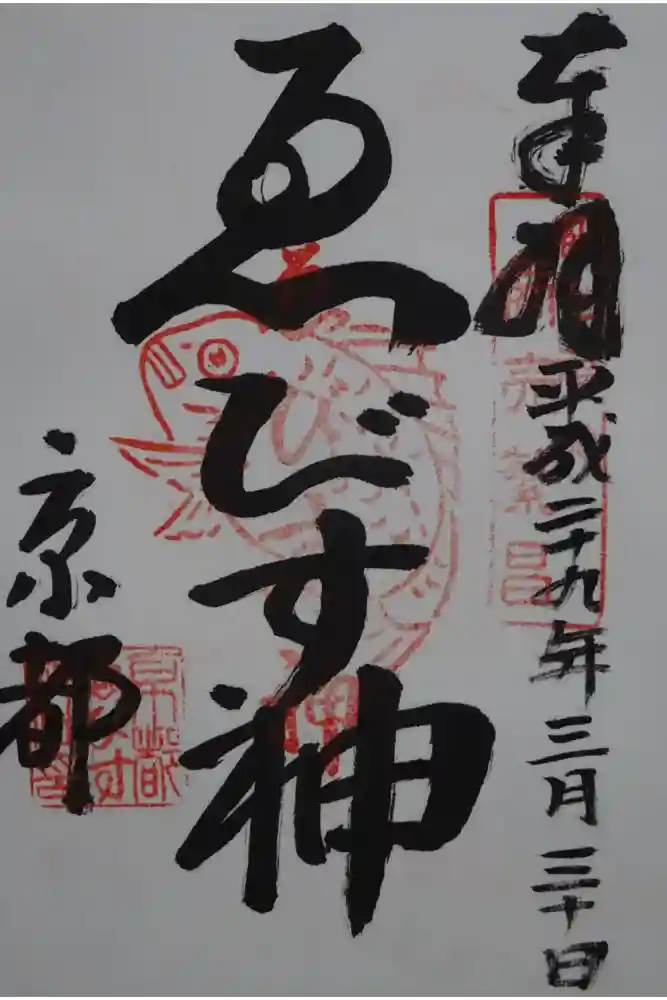 奉拝
平成二十九年三月三十日
ゑびす神
京都